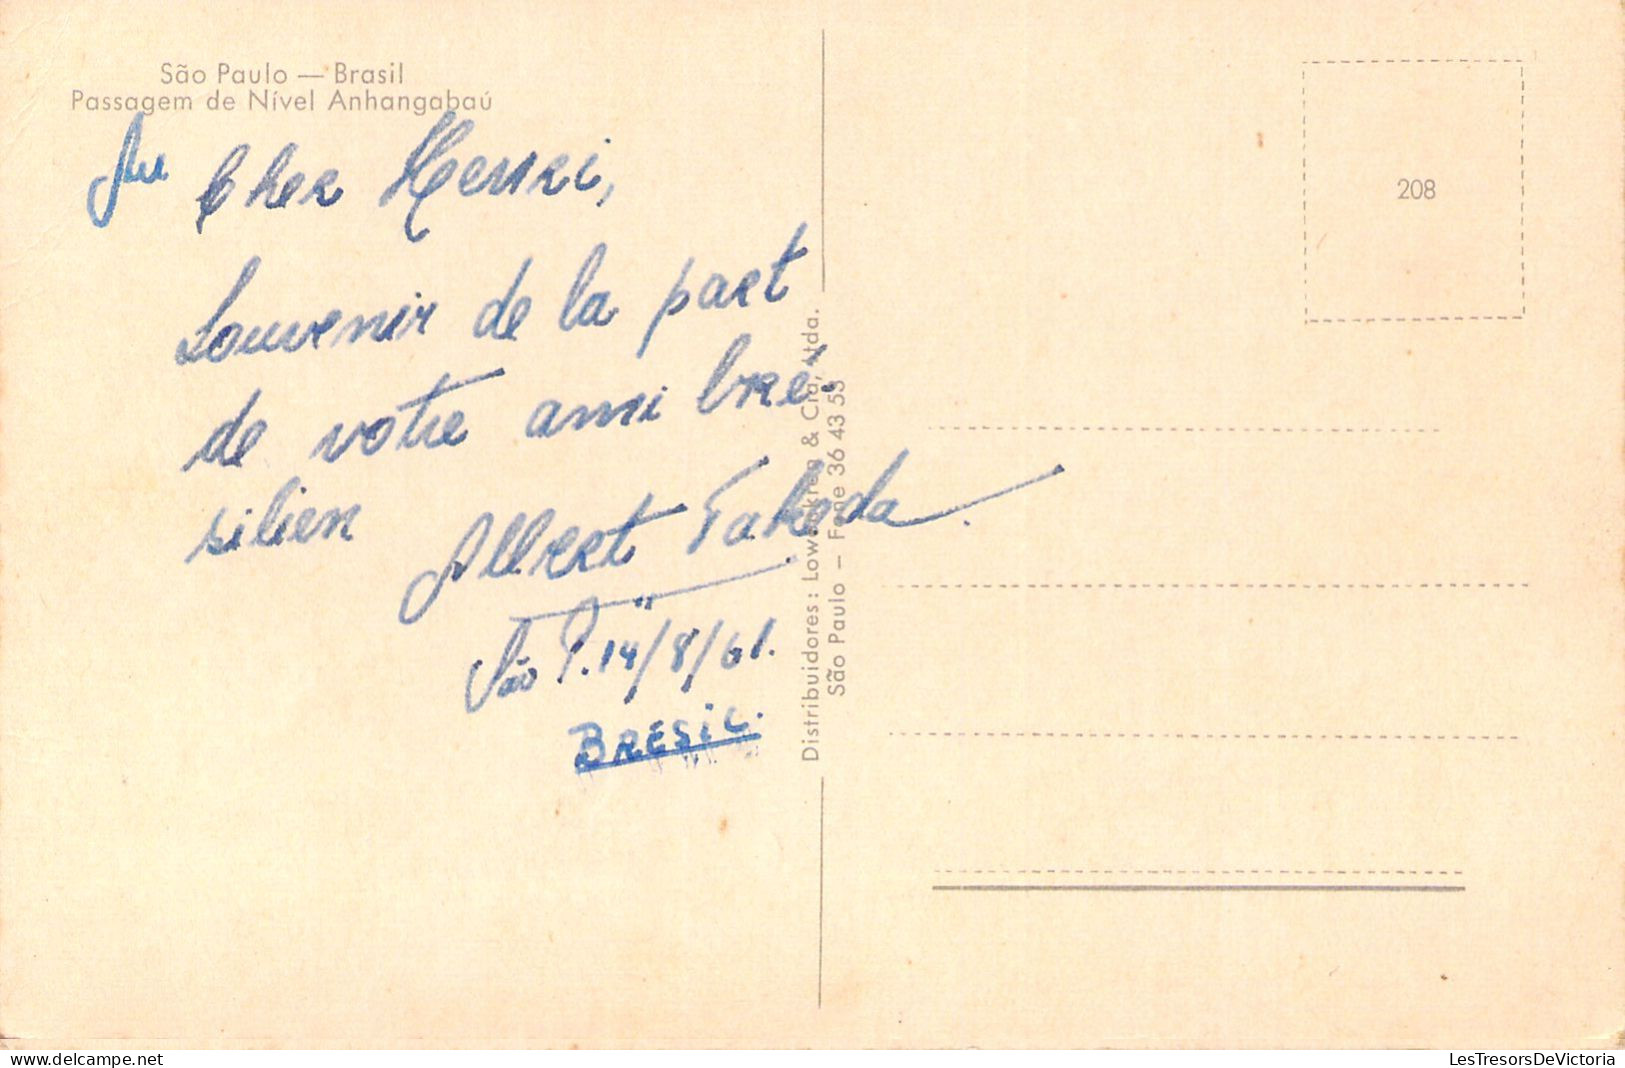 São Paulo — Brasil
Passagem de Nível Anhangabaú
Au Cher Henri,
Souvenir de la part
de votre ami bré-
silien
Albert Takeda
São P. 14/8/61.
BRESIL.
Distribuidores: Lowenkron & Cia, Ltda.
São Paulo — Fone 36 43 53
208
LesTresorsDeVictoria
delcampe.net